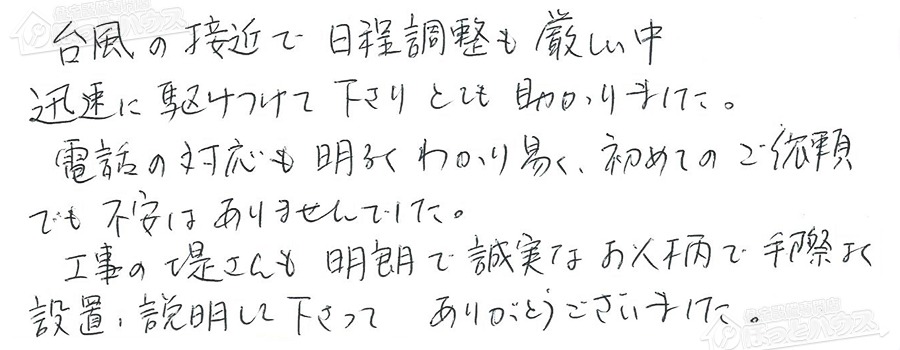 台風の接近で日程調整も厳しい中
迅速に駆けつけて下さりとても助かりました。
電話の対応も明るくわかり易く、初めてのご依頼
でも不安はありませんでした。
工事の堤さんも明朗で誠実なお人柄で手際よく
設置、説明して下さって ありがとうございました。